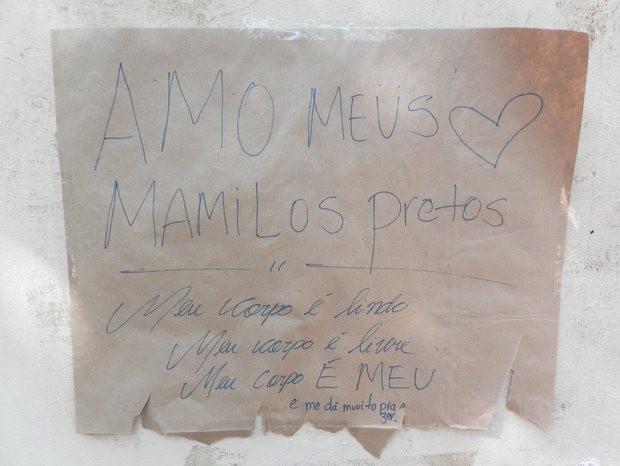 AMO MEUS
MAMILOS pretos
"
Meu corpo é lindo
Meu corpo é livre..
Meu corpo É MEU
e me dá muuito pra
zer.